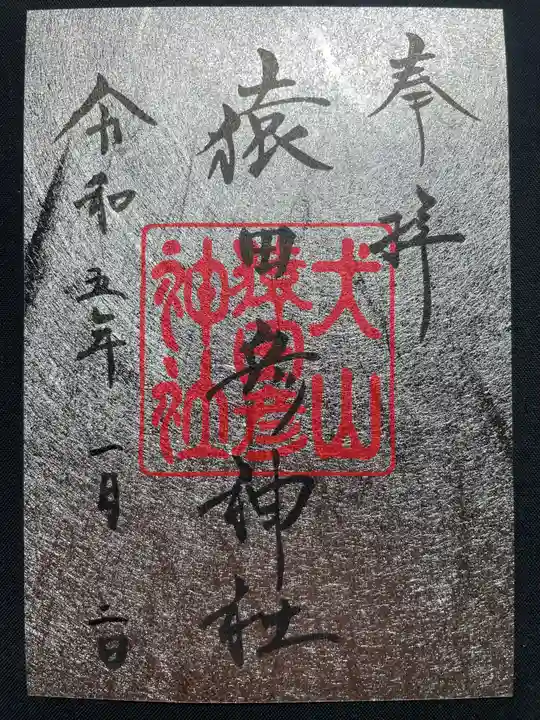 奉拝
猿田彦神社
犬山
猿田彦
神社
令和五年一月二日